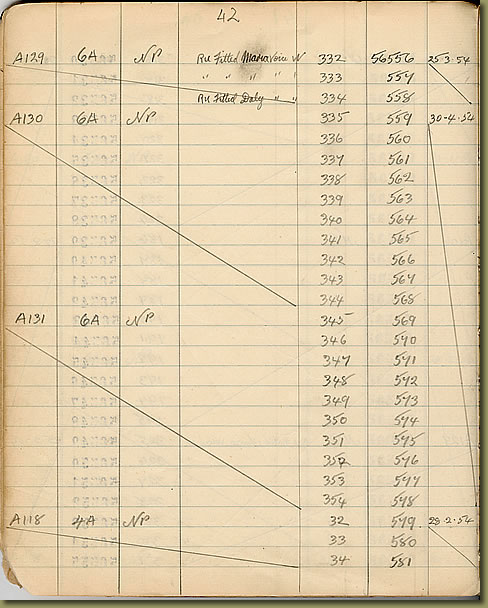 42
A129 6A NP Re Fitted Maria Voin N 332 56556 25.3.54
" " " " 333 557
Re Fitted Daly " " 334 558
A130 6A NP 335 559 30-4-54
336 560
337 561
338 562
339 563
340 564
341 565
342 566
343 567
344 568
A131 6A NP 345 569
346 570
347 571
348 572
349 573
350 574
351 575
352 576
353 577
354 578
A118 4A NP 32 579 28-2-54
33 580
34 581